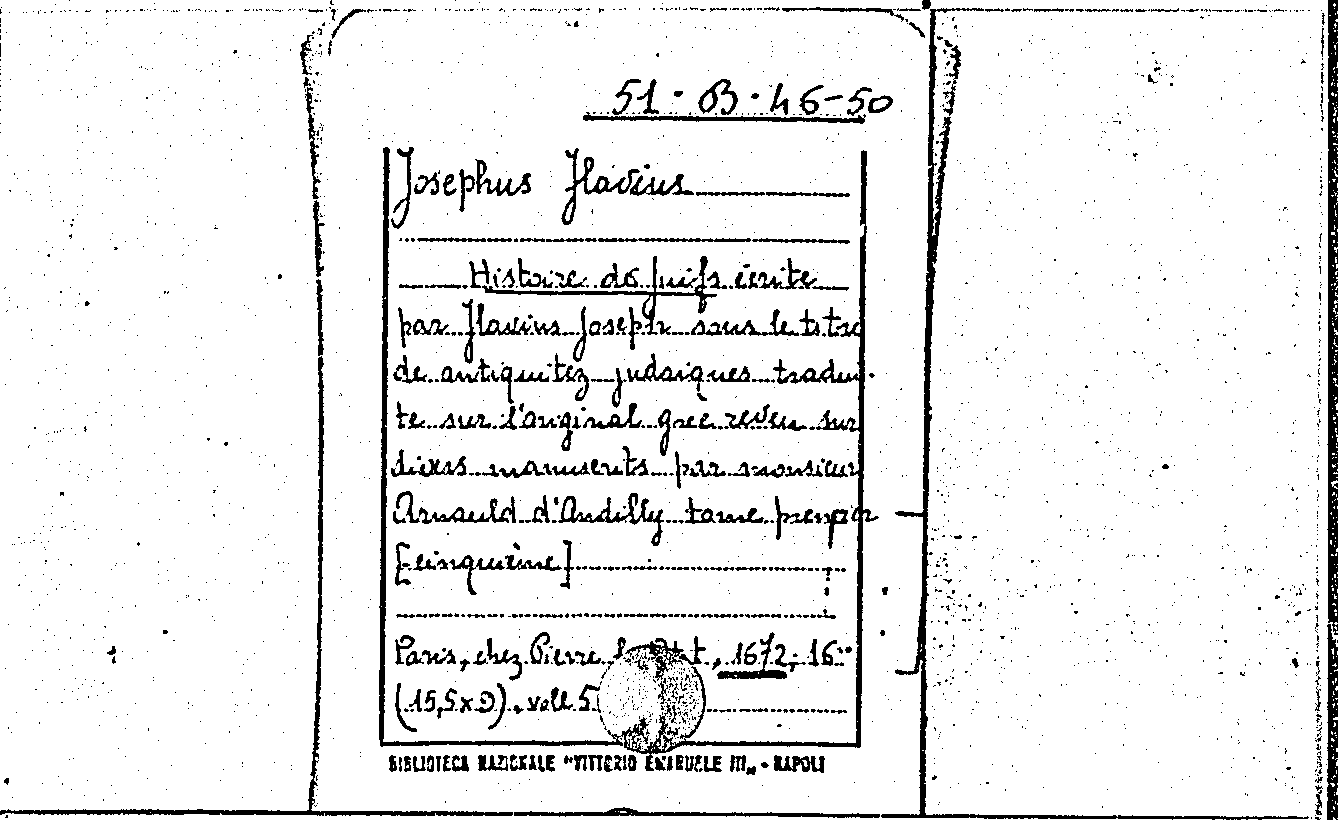 51·B·46-50
Josephus Flavius
Histoire des Juifs écrite
par Flavius Joseph sous le titre
de antiquitez judaiques tradui-
te sur l'original grec reveu sur
divers manuscrits par monsieur
Arnauld d'Andilly tome premier
[-cinquième]
Paris, chez Pierre le , 1672; 16°
(15,5x9). voll 5
BIBLIOTECA NAZIONALE "VITTORIO EMANUELE III„ - NAPOLI